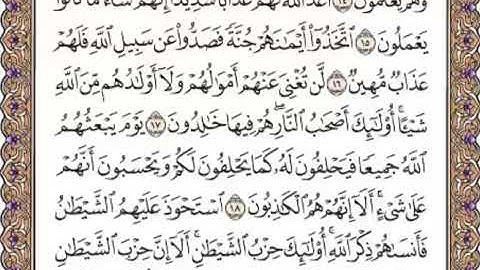 وَهُمْ يَعْلَمُونَ ۝١٤ أَعَدَّ ٱللَّهُ لَهُمْ عَذَابًا شَدِيدًا إِنَّهُمْ سَآءَ مَا كَانُوا۟
يَعْمَلُونَ ۝١٥ ٱتَّخَذُوٓا۟ أَيْمَٰنَهُمْ جُنَّةً فَصَدُّوا۟ عَن سَبِيلِ ٱللَّهِ فَلَهُمْ
عَذَابٌ مُّهِينٌ ۝١٦ لَّن تُغْنِىَ عَنْهُمْ أَمْوَٰلُهُمْ وَلَآ أَوْلَٰدُهُم مِّنَ ٱللَّهِ
شَيْـًٔا أُو۟لَٰٓئِكَ أَصْحَٰبُ ٱلنَّارِ هُمْ فِيهَا خَٰلِدُونَ ۝١٧ يَوْمَ يَبْعَثُهُمُ
ٱللَّهُ جَمِيعًا فَيَحْلِفُونَ لَهُۥ كَمَا يَحْلِفُونَ لَكُمْ وَيَحْسَبُونَ أَنَّهُمْ
عَلَىٰ شَىْءٍ أَلَآ إِنَّهُمْ هُمُ ٱلْكَٰذِبُونَ ۝١٨ ٱسْتَحْوَذَ عَلَيْهِمُ ٱلشَّيْطَٰنُ
فَأَنسَىٰهُمْ ذِكْرَ ٱللَّهِ أُو۟لَٰٓئِكَ حِزْبُ ٱلشَّيْطَٰنِ أَلَآ إِنَّ حِزْبَ ٱلشَّيْطَٰنِ